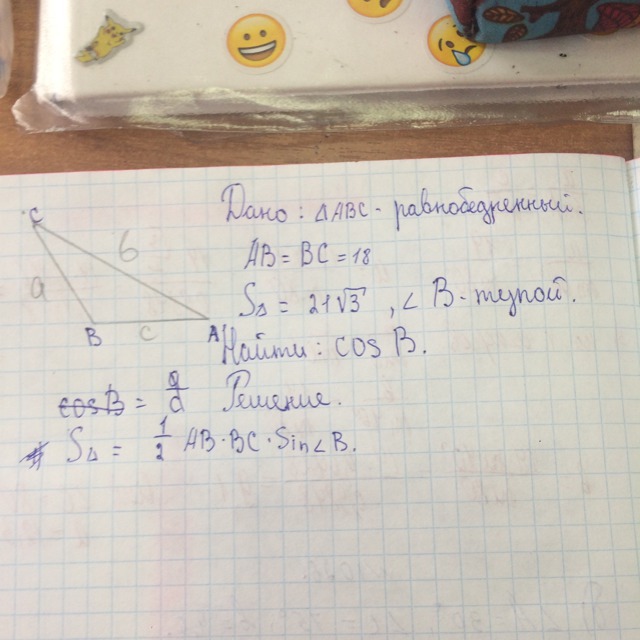 Дано: △ABC - равнобедренный.
AB = BC = 18
S△ = 21√3 , ∠ B - тупой.
Найти: cos B.
C
б
a
B
c
A
cosB = a/d Решение.
S△ = 1/2 AB · BC · Sin∠B.